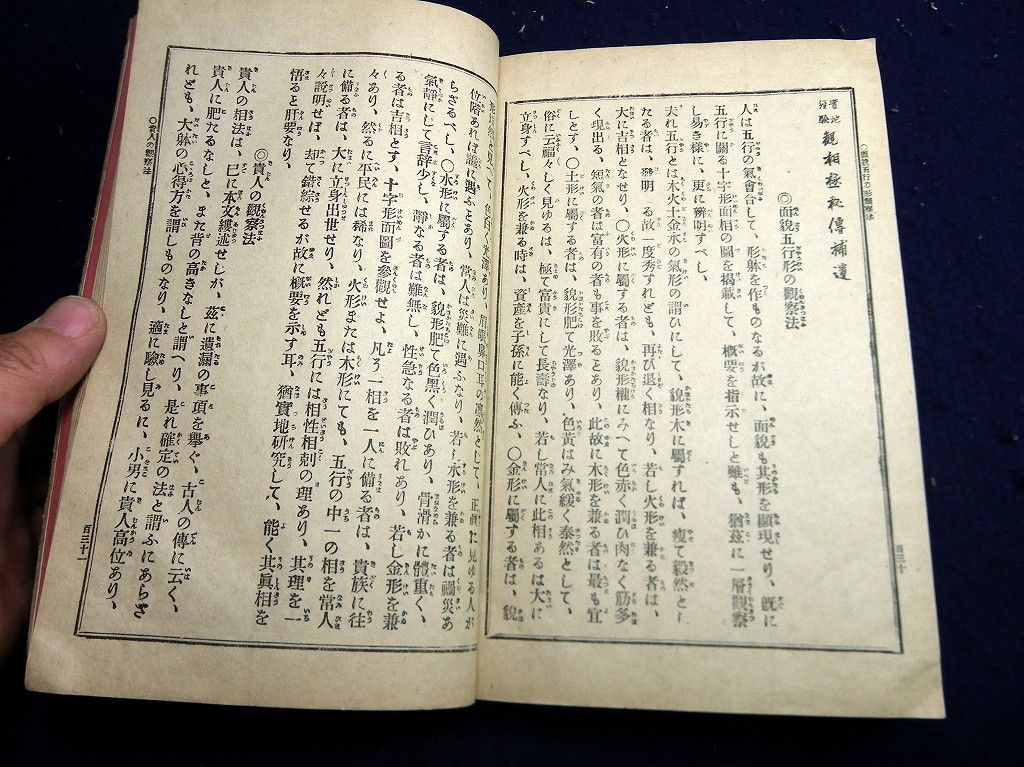 實地
經驗
觀相極秘傳補遺
◎面貌五行形の觀察法
人は五行の氣會合して、形躰を作ものなるが故に、面貌も其形を顯現せり、既に
五行に關る十字形面相の圖を掲載して、概要を指示せしと雖も、猶茲に一層觀察
し易き樣に、更に辨明すべし、
夫れ五行とは木火土金水の氣形の謂ひにして、貌形木に屬すれば、瘦て毅然とし
たる者は、發明 る故一度秀すれども、再び退く相なり、若し火形を兼る者は、
大に吉相となせり、〇火形に屬する者は、貌形權にみへて色赤く潤ひ肉なく筋多
く現出る、短氣の者は富有の者も事を敗るとあり、此故に木形を兼る者は最も宜
しとす、〇土形に屬する者は、貌形肥て光澤あり、色黃はみ氣緩く泰然として、
俗に云福々しく見ゆるは、極て富貴にして長壽なり、若し常人に此相あるは大に
立身すべし、火形を兼る時は、資產を子孫に能く傳ふ、〇金形に屬する者は、貌
百三十
〇面貌五行の形觀察法
光澤あり、眉眼鼻口耳の凛然として、正直に見ゆる人が
位階あれば論に遇ふとあり、常人は災難に遇ふなり、若し水形を兼る者は禍災あ
らざるべし、〇水形に屬する者は、貌形肥て色黑く潤ひあり、骨滑かに體重く、
氣靜にして言辭少し、靜なる者は難無し、性急なる者は敗れあり、若し金形を兼
る者は吉相とす、十字形面圖を參觀せよ、凡ろ一相を一人に備る者は、貴族に往
々あり、然るに平民には稀なり、火形または木形にても、五行の中一の相を常人
に備る者は、大に立身出世せり、然れども五行には相性相剋の理あり、其理を一
々說明せば、却て錯綜せるが故に概要を示す耳、猶實地研究して、能く其眞相を
悟ると肝要なり、
◎貴人の觀察法
貴人の相法は、已に本文縷述せしが、茲に遺漏の事項を擧ぐ、古人の傳に云く、
貴人に肥たるなしと、また背の高きなしと謂へり、是れ確定の法と謂ふにあらざ
れども、大躰の心得方を謂しものなり、適に驗し見るに、小男に貴人高位あり、
〇貴人の觀察法
百三十一